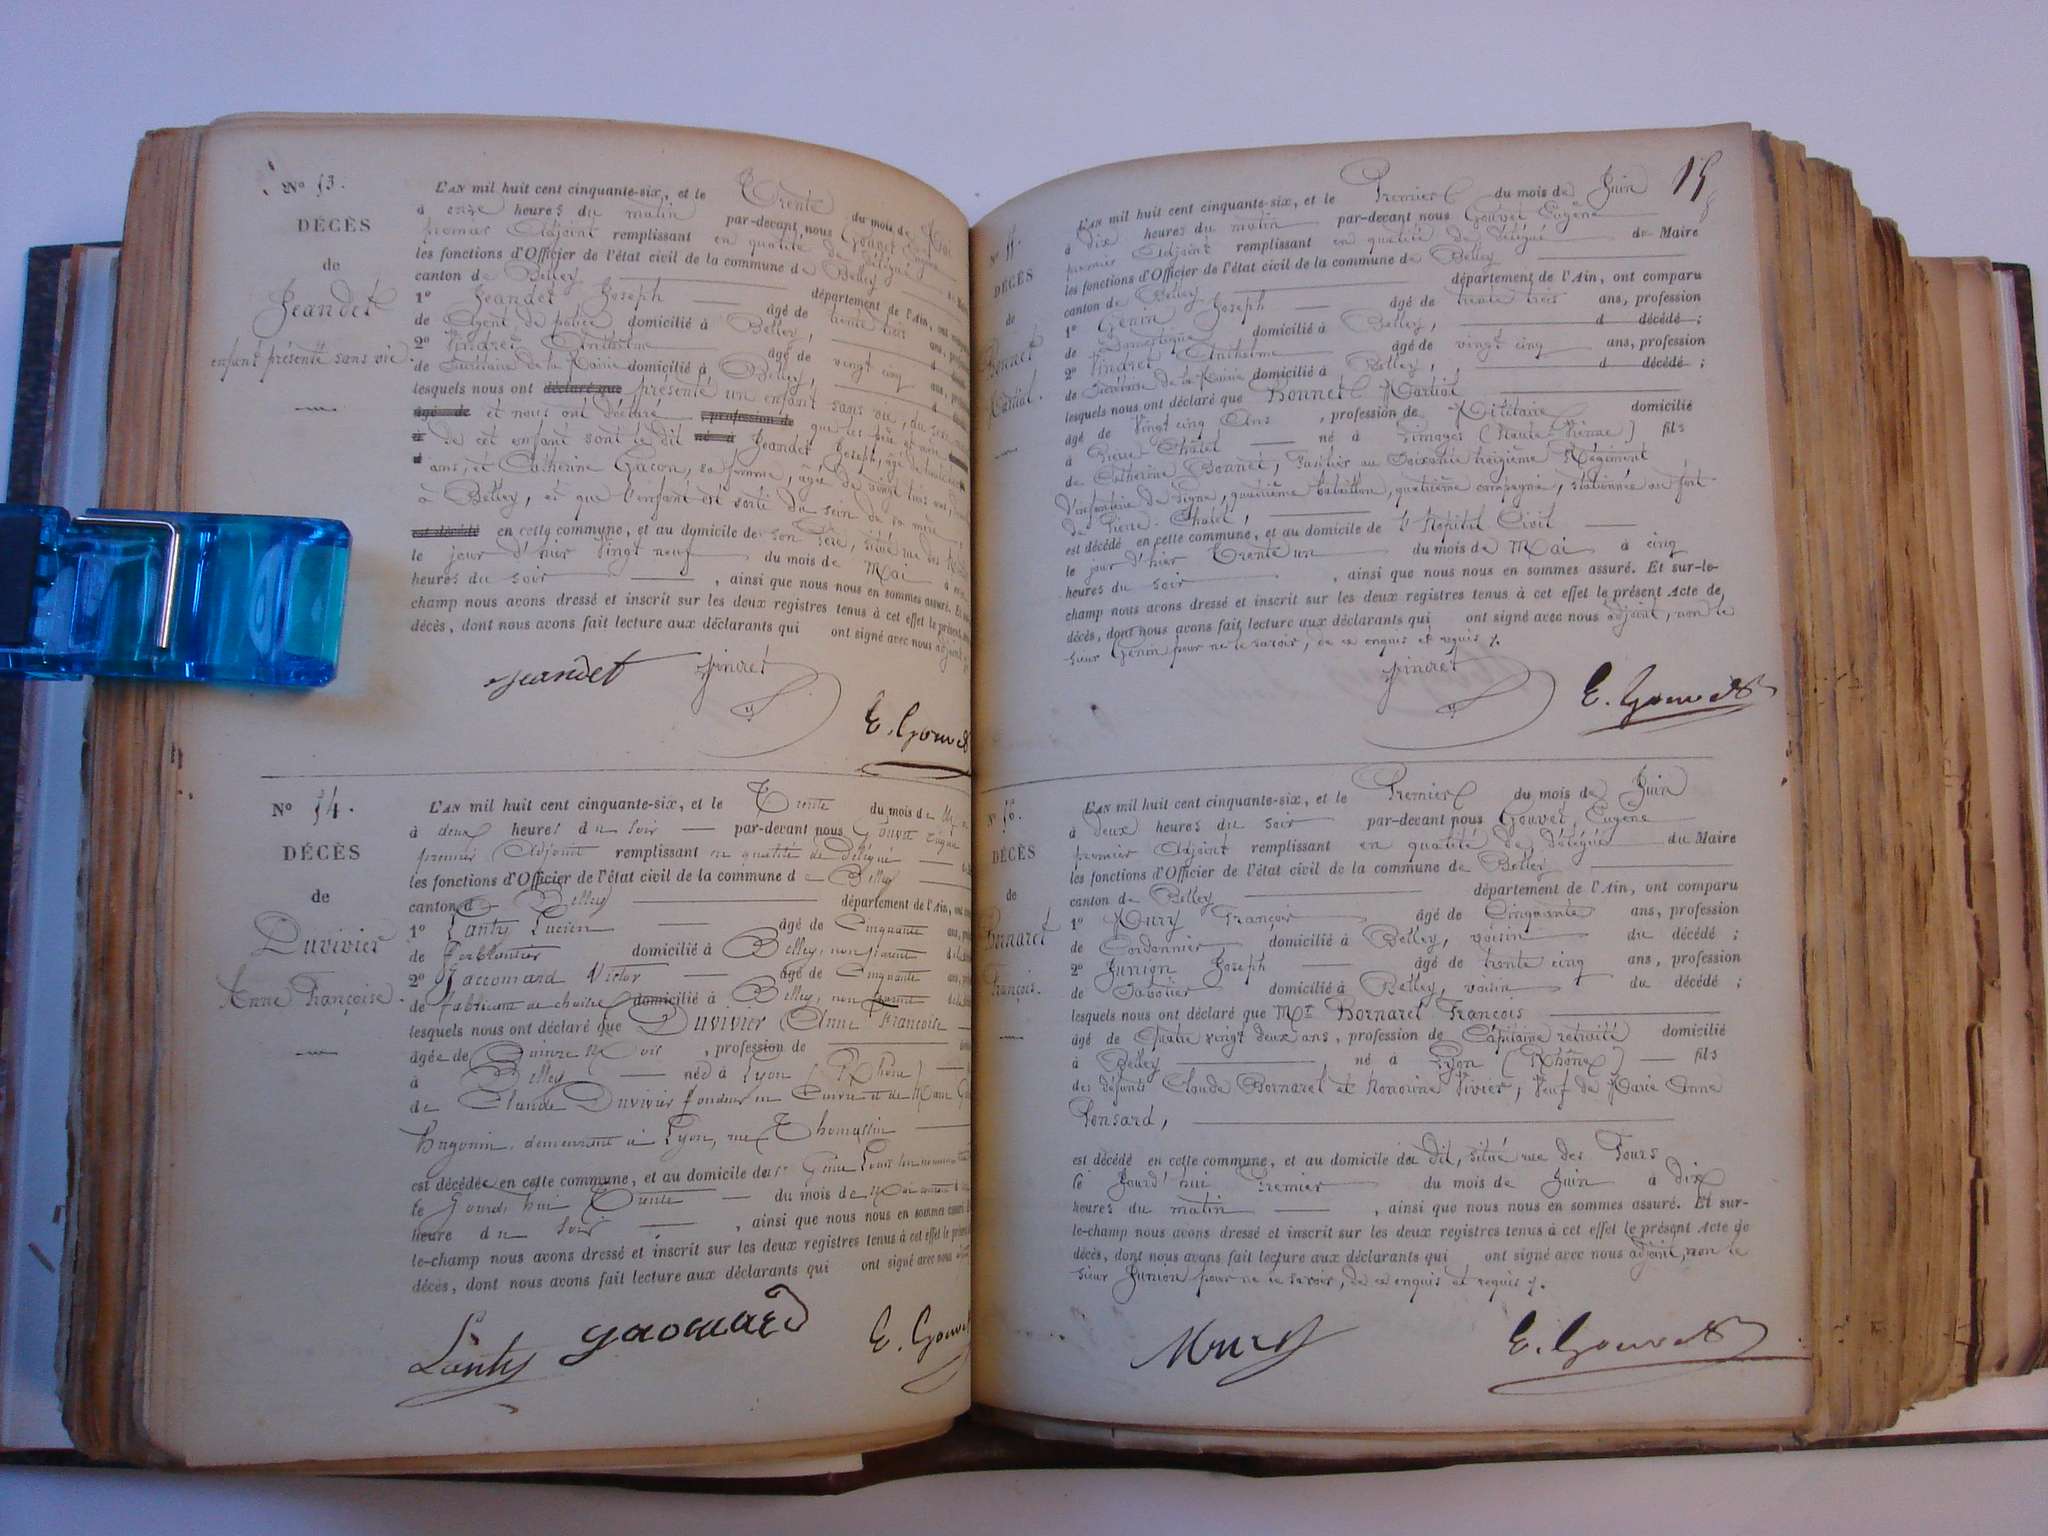 Nº 53.
DÉCÈS
de
Jeandet
enfant présenté sans vie.
L'AN mil huit cent cinquante-six, et le Trente du mois de Mai
à onze heures du matin par-devant nous Gouvet Eugène
premier Adjoint remplissant en qualité de délégué
les fonctions d'Officier de l'état civil de la commune de Belley
canton de Belley département de l'Ain, ont
1º Jeandet Joseph âgé de trente trois ans, profession
de Agent de police domicilié à Belley, d décédé
2º Vindret Anthelme âgé de vingt cinq ans, profession
de Secrétaire de la Mairie domicilié à Belley, d décédé
lesquels nous ont déclaré que présenté un enfant sans vie, du sexe
âgé de et nous ont déclaré profession de que les père et mère
à de cet enfant sont le dit né à Jeandet Joseph, âgé de trente trois
ans, et Catherine Gacon, sa femme, âgée de vingt trois ans,
à Belley, et que l'enfant est sorti du sein de sa mère,
est décédé en cette commune, et au domicile de son Père, situé rue des
le jour d'hier Vingt neuf du mois de Mai à
heures du soir , ainsi que nous nous en sommes assuré. Et
champ nous avons dressé et inscrit sur les deux registres tenus à cet effet le présent
décès, dont nous avons fait lecture aux déclarants qui ont signé avec nous adjoint
Jeandet Vindret
E. Gouvet
Nº 54.
DÉCÈS
de
Duvivier
Anne Françoise.
L'AN mil huit cent cinquante-six, et le Trente du mois de Mai
à deux heures du soir par-devant nous Gouvet Eugène
premier Adjoint remplissant en qualité de Délégué
les fonctions d'Officier de l'état civil de la commune de Belley
canton de Belley département de l'Ain, ont
1º Lanty Lucien âgé de Cinquante ans,
de Ferblantier domicilié à Belley, non parent
2º Jaccomard Victor âgé de Cinquante ans,
de fabricant de chaises domicilié à Belley, non parent
lesquels nous ont déclaré que Duvivier Anne Françoise
âgée de Quinze Mois , profession de
à Belley née à Lyon (Rhône)
de Claude Duvivier fondeur en Cuivre et de Marie
Hugonin, demeurant à Lyon, rue Thomassin
est décédée en cette commune, et au domicile de
le Jourd'hui Trente du mois de Mai
heure du soir , ainsi que nous nous en sommes assuré.
le-champ nous avons dressé et inscrit sur les deux registres tenus à cet effet le présent
décès, dont nous avons fait lecture aux déclarants qui ont signé avec nous
Lanty Jaccomard E. Gouvet
15
Nº 55.
DÉCÈS
de
Bonnet
Martial.
L'AN mil huit cent cinquante-six, et le Premier du mois de Juin
à dix heures du matin par-devant nous Gouvet Eugène
premier Adjoint remplissant en qualité de délégué du Maire
les fonctions d'Officier de l'état civil de la commune de Belley
canton de Belley département de l'Ain, ont comparu
1º Génin Joseph âgé de trente trois ans, profession
de Domestique domicilié à Belley, d décédé ;
2º Vindret Anthelme âgé de vingt cinq ans, profession
de Secrétaire de la Mairie domicilié à Belley, d décédé ;
lesquels nous ont déclaré que Bonnet Martial
âgé de Vingt cinq Ans , profession de Militaire domicilié
à Pierre Châtel né à Limoges (Haute-Vienne) fils
de Catherine Bonnet, Fusilier au Soixante treizième Régiment
d'infanterie de Ligne, quatrième bataillon, quatrième compagnie, stationnée au fort
de Pierre-Châtel,
est décédé en cette commune, et au domicile de l'Hopital Civil
le jour d'hier Trente un du mois de Mai à cinq
heures du soir , ainsi que nous nous en sommes assuré. Et sur-le-
champ nous avons dressé et inscrit sur les deux registres tenus à cet effet le présent Acte de
décès, dont nous avons fait lecture aux déclarants qui ont signé avec nous adjoint, non le
sieur Génin pour ne le savoir, de ce enquis et requis.
Vindret E. Gouvet
Nº 56.
DÉCÈS
de
Bornarel
François.
L'AN mil huit cent cinquante-six, et le Premier du mois de Juin
à deux heures du soir par-devant nous Gouvet, Eugène
premier Adjoint remplissant en qualité de délégué du Maire
les fonctions d'Officier de l'état civil de la commune de Belley
canton de Belley département de l'Ain, ont comparu
1º Mury François âgé de Cinquante ans, profession
de Cordonnier domicilié à Belley, voisin du décédé ;
2º Junion Joseph âgé de trente cinq ans, profession
de Sabotier domicilié à Belley, voisin du décédé ;
lesquels nous ont déclaré que Mr Bornarel François
âgé de Quatre vingt deux ans, profession de Capitaine retraité domicilié
à Belley né à Lyon (Rhône) fils
des défunts Claude Bornarel et Honorine Vivier, Veuf de Marie Anne
Ponsard,
est décédé en cette commune, et au domicile du dit, situé rue des Fours
le Jourd'hui Premier du mois de Juin à dix
heures du matin , ainsi que nous nous en sommes assuré. Et sur-
le-champ nous avons dressé et inscrit sur les deux registres tenus à cet effet le présent Acte de
décès, dont nous avons fait lecture aux déclarants qui ont signé avec nous adjoint, non le
sieur Junion pour ne le savoir, de ce enquis et requis.
Mury E. Gouvet